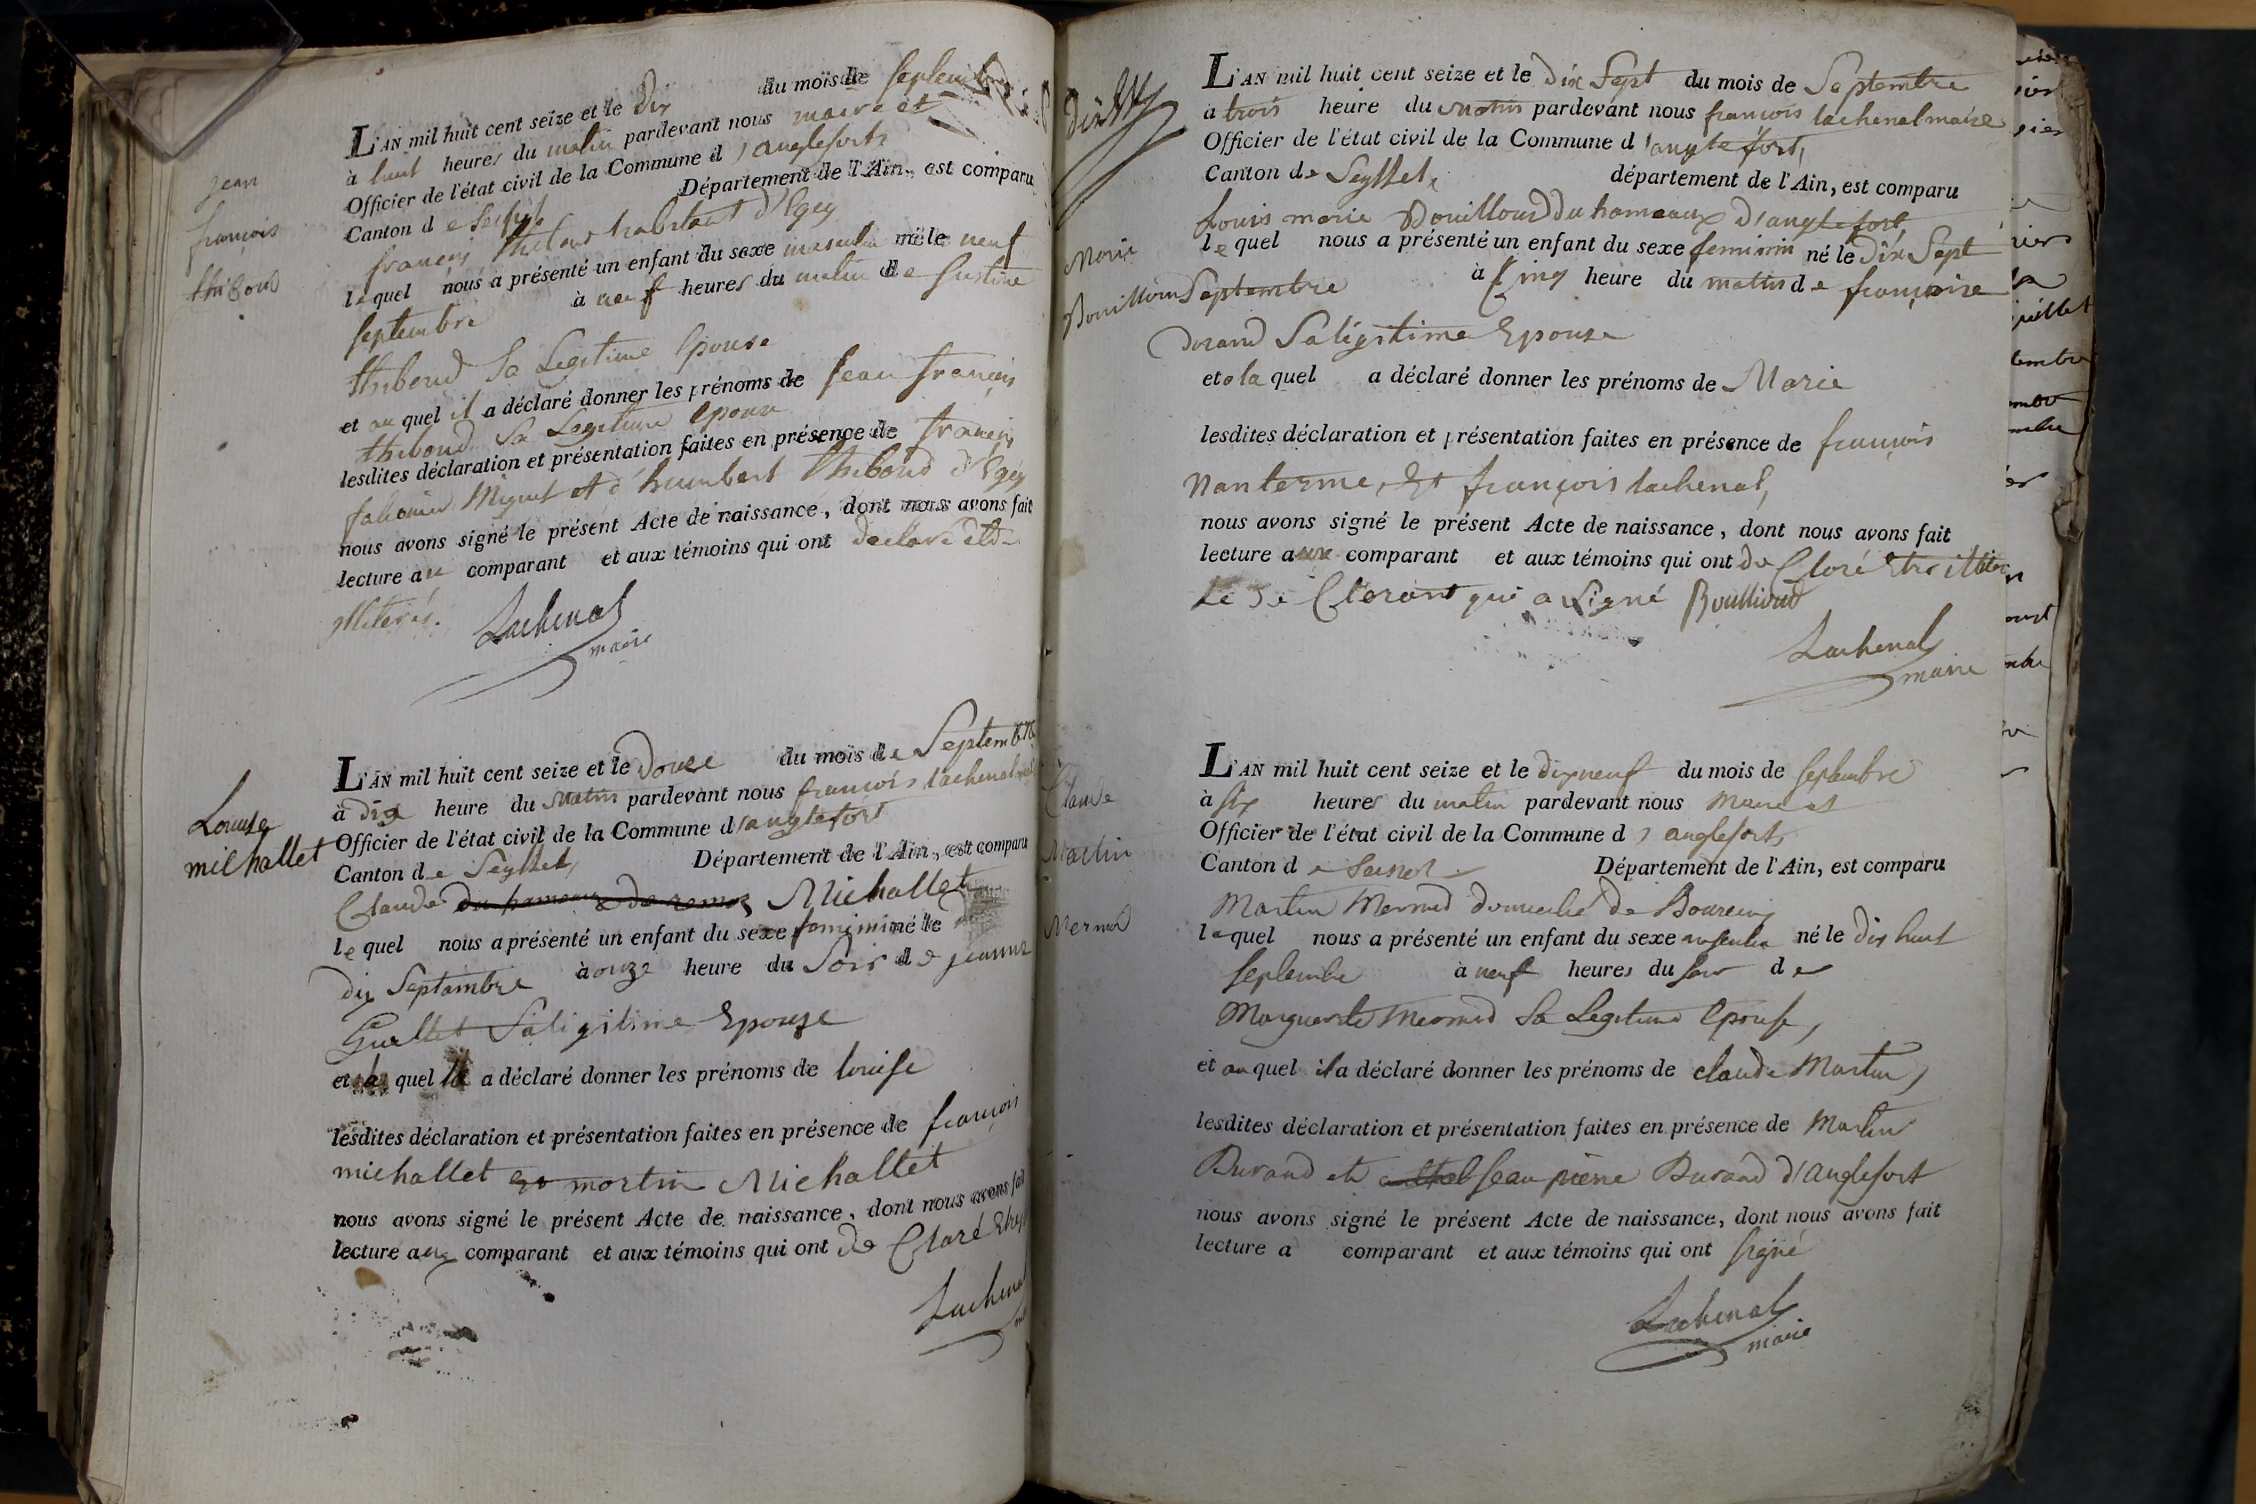 Jean
françois
thiboud
L'AN mil huit cent seize et le Dix du mois de septembre
à huit heures du matin pardevant nous maire et
Officier de l'état civil de la Commune d'anglefort
Canton de
Département de l'Ain, est comparu
françois thiboud habitant d'
lequel nous a présenté un enfant du sexe masculin né le neuf
septembre à neuf heures du matin de Justine
thiboud Sa Legitime Epouse
et au quel il a déclaré donner les prénoms de jean françois
thiboud Sa Legitime epouse
lesdites déclaration et présentation faites en présence de françois
Miguet et d'humbert thiboud d'
nous avons signé le présent Acte de naissance, dont nous avons fait
lecture au comparant et aux témoins qui ont declaré etre
illiterés.
Lachenal
maire
Louise
michallet
L'AN mil huit cent seize et le Douze du mois de Septembre
à dix heure du matin pardevant nous françois lachenal
Officier de l'état civil de la Commune d'anglefort
Canton de Seyssel,
Département de l'Ain, est comparu
Claude Michallet
lequel nous a présenté un enfant du sexe feminin né le
dix Septambre à onze heure du Soir de jeanne
Guillet Saligitime Epouze
et la quel a déclaré donner les prénoms de louise
lesdites déclaration et présentation faites en présence de françois
michallet Et martin Michallet
nous avons signé le présent Acte de naissance, dont nous avons fait
lecture aux comparant et aux témoins qui ont de Claré
Lachenal
Marie
Bouilloud
L'AN mil huit cent seize et le dix Sept du mois de Septembre
a trois heure du matin pardevant nous françois lachenal maire
Officier de l'état civil de la Commune d'anglefort,
Canton de Seyssel,
département de l'Ain, est comparu
louis marie Bouilloud du hameaux d'anglefort
lequel nous a présenté un enfant du sexe feminin né le dix Sept
Septembre à Cinq heure du matin de françoise
durand Saligitime Epouze
et a la quel a déclaré donner les prénoms de Marie
lesdites déclaration et présentation faites en présence de françois
Nanterme, Et françois lachenal,
nous avons signé le présent Acte de naissance, dont nous avons fait
lecture aux comparant et aux témoins qui ont de Claré
Le de Clarant qui a Signé Boullioud
Lachenal
maire
Claude
Martin
Mermod
L'AN mil huit cent seize et le dix neuf du mois de septembre
à six heures du matin pardevant nous Maire et
Officier de l'état civil de la Commune d'anglefort
Canton de
Département de l'Ain, est comparu
Martin Mermod domicilié de
lequel nous a présenté un enfant du sexe masculin né le dix huit
septembre à neuf heures du soir de
Marguerite Mermod Sa Legitime Epouse,
et au quel il a déclaré donner les prénoms de claude Martin,
lesdites déclaration et présentation faites en présence de Martin
Durand et jean pierre Durand d'anglefort
nous avons signé le présent Acte de naissance, dont nous avons fait
lecture a comparant et aux témoins qui ont signé
Lachenal
maire